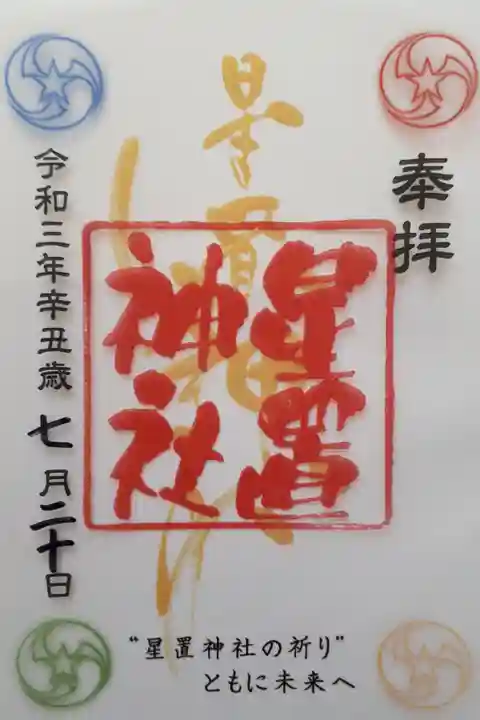 奉拝
星置神社
星置
神社
令和三年辛丑歳 七月二十日
"星置神社の祈り"
ともに未来へ